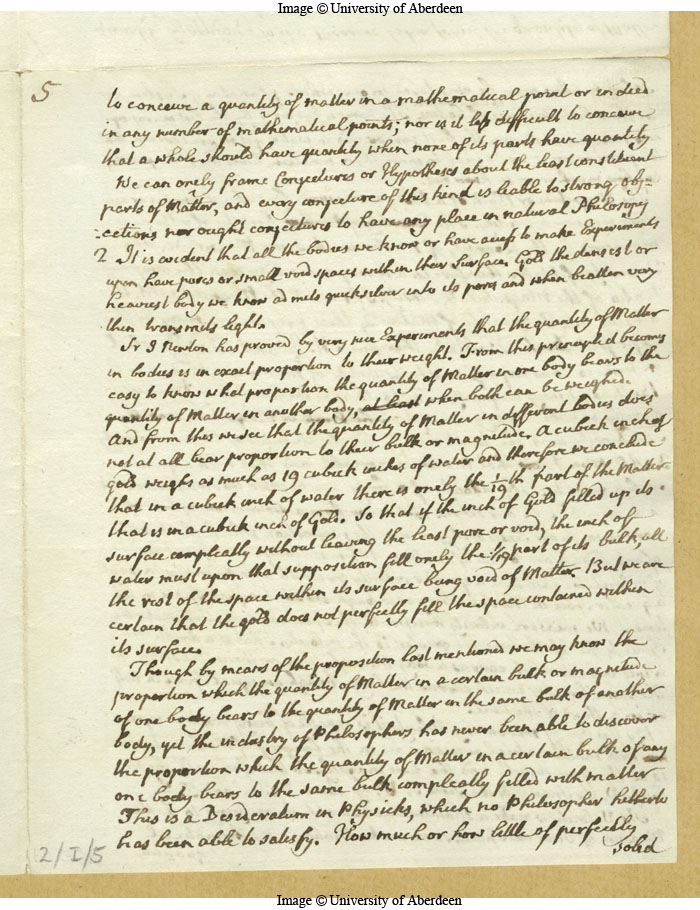 Image © University of Aberdeen
5
to conceive a quantity of matter in a mathematical point or indeed
in any number of mathematical points; nor is it less difficult to conceive
that a whole should have quantity when none of its parts have quantity
We can onely frame Conjectures or Hypotheses about the least constituent
parts of Matter, and every conjecture of this kind is liable to strong obj=
=ections nor ought conjectures to have any place in natural Philosophy
2 It is evident that all the bodies we know or have access to make Experiments
upon have pores or small void spaces within their surface. Gold the densest or
heaviest body we know admits quicksilver into its pores and when beatten very
thin transmits light.
Sr I Newton has proved by very nice Experiments that the quantity of Matter
in bodies is in exact proportion to their weight. From this principle it becomes
easy to know what proportion the quantity of Matter in one body bears to the
quantity of Matter in another body, at least when both can be weighed.
And from this we see that the quantity of Matter in different bodies does
not at all bear proportion to their bulk or magnitude. A cubick inch of
gold weighs as much as 19 cubick inches of water and therefore we conclude
that in a cubick inch of water there is onely the 1/19th part of the Matter
that is in a cubick inch of Gold. So that if the inch of Gold filled up its
surface compleatly without leaving the least pore or void, the inch of
water must upon that supposition fill onely the 1/19 part of its bulk, all
the rest of the space within its surface being void of Matter. But we are
certain that the gold does not perfectly fill the space contained within
its surface.
Though by means of the proposition last mentioned we may know the
proportion which the quantity of Matter in a certain bulk or magnitude
of one body bears to the quantity of Matter in the same bulk of another
body, yet the industry of Philosophers has never been able to discover
the proportion which the quantity of Matter in a certain bulk of any
one body bears to the same bulk compleatly filled with matter
This is a Desideratum in Physicks, which no Philosopher hitherto
has been able to satisfy. How much or how little of perfectly
solid
2/I/5
Image © University of Aberdeen